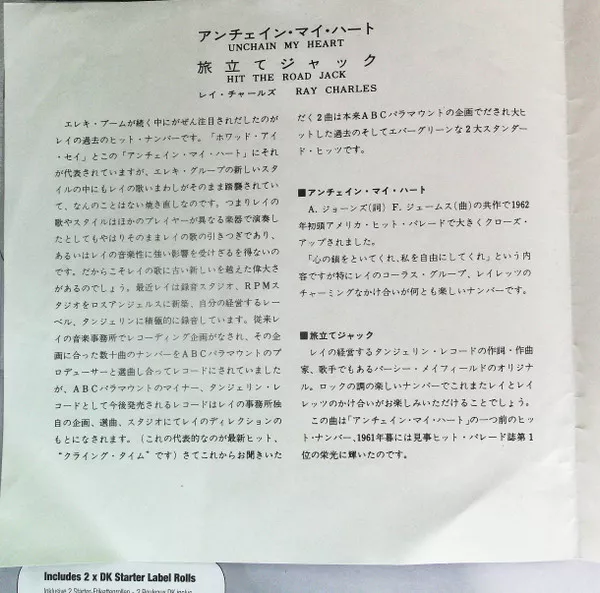 アンチェイン・マイ・ハート
UNCHAIN MY HEART
旅立てジャック
HIT THE ROAD JACK
レイ・チャールズ RAY CHARLES
エレキ・ブームが続く中にがぜん注目されだしたのが
レイの過去のヒット・ナンバーです。「ホワッド・アイ
・セイ」とこの「アンチェイン・マイ・ハート」にそれ
が代表されていますが、エレキ・グループの新しいスタ
イルの中にもレイの歌いまわしがそのまま踏襲されてい
て、なんのことはない焼き直しなのです。つまりレイの
歌やスタイルはほかのプレイヤーが異なる楽器で演奏し
たとしてもやはりそのままレイの歌の引きつぎであり、
あるいはレイの音楽性に強い影響を受けざるを得ないの
です。だからこそレイの歌に古い新しいを越えた偉大さ
があるのでしょう。最近レイは録音スタジオ、RPMス
タジオをロスアンジェルスに新築、自分の経営するレー
ベル、タンジェリンに積極的に録音しています。従来レ
イの音楽事務所でレコーディング企画がなされ、その企
画に合った数十曲のナンバーをABCパラマウントのプ
ロデューサーと選曲し合ってレコードにされていました
が、ABCパラマウントのマイナー、タンジェリン・レ
コードとして今後発売されるレコードはレイの事務所独
自の企画、選曲、スタジオにてレイのディレクションの
もとになされます。(これの代表的なのが最新ヒット、
“クライング・タイム”です)さてこれからお聞きいた
だく2曲は本来ABCパラマウントの企画でだされ大ヒ
ットした過去のそしてエバーグリーンな2大スタンダー
ド・ヒッツです。
■アンチェイン・マイ・ハート
A. ジョーンズ(詞) F. ジェームス(曲)の共作で1962
年初頭アメリカ・ヒット・パレードで大きくクローズ・
アップされました。
「心の鎖をといてくれ、私を自由にしてくれ」という内
容ですが特にレイのコーラス・グループ、レイレッツの
チャーミングなかけ合いが何とも楽しいナンバーです。
■旅立てジャック
レイの経営するタンジェリン・レコードの作詞・作曲
家、歌手でもあるパーシー・メイフィールドのオリジナ
ル。ロックの調の楽しいナンバーでこれまたレイとレイ
レッツのかけ合いがお楽しみいただけることでしょう。
この曲は「アンチェイン・マイ・ハート」の一つ前のヒッ
ト・ナンバー、1961年暮には見事ヒット・パレード誌第1
位の栄光に輝いたのです。
Includes 2 x DK Starter Label Rolls